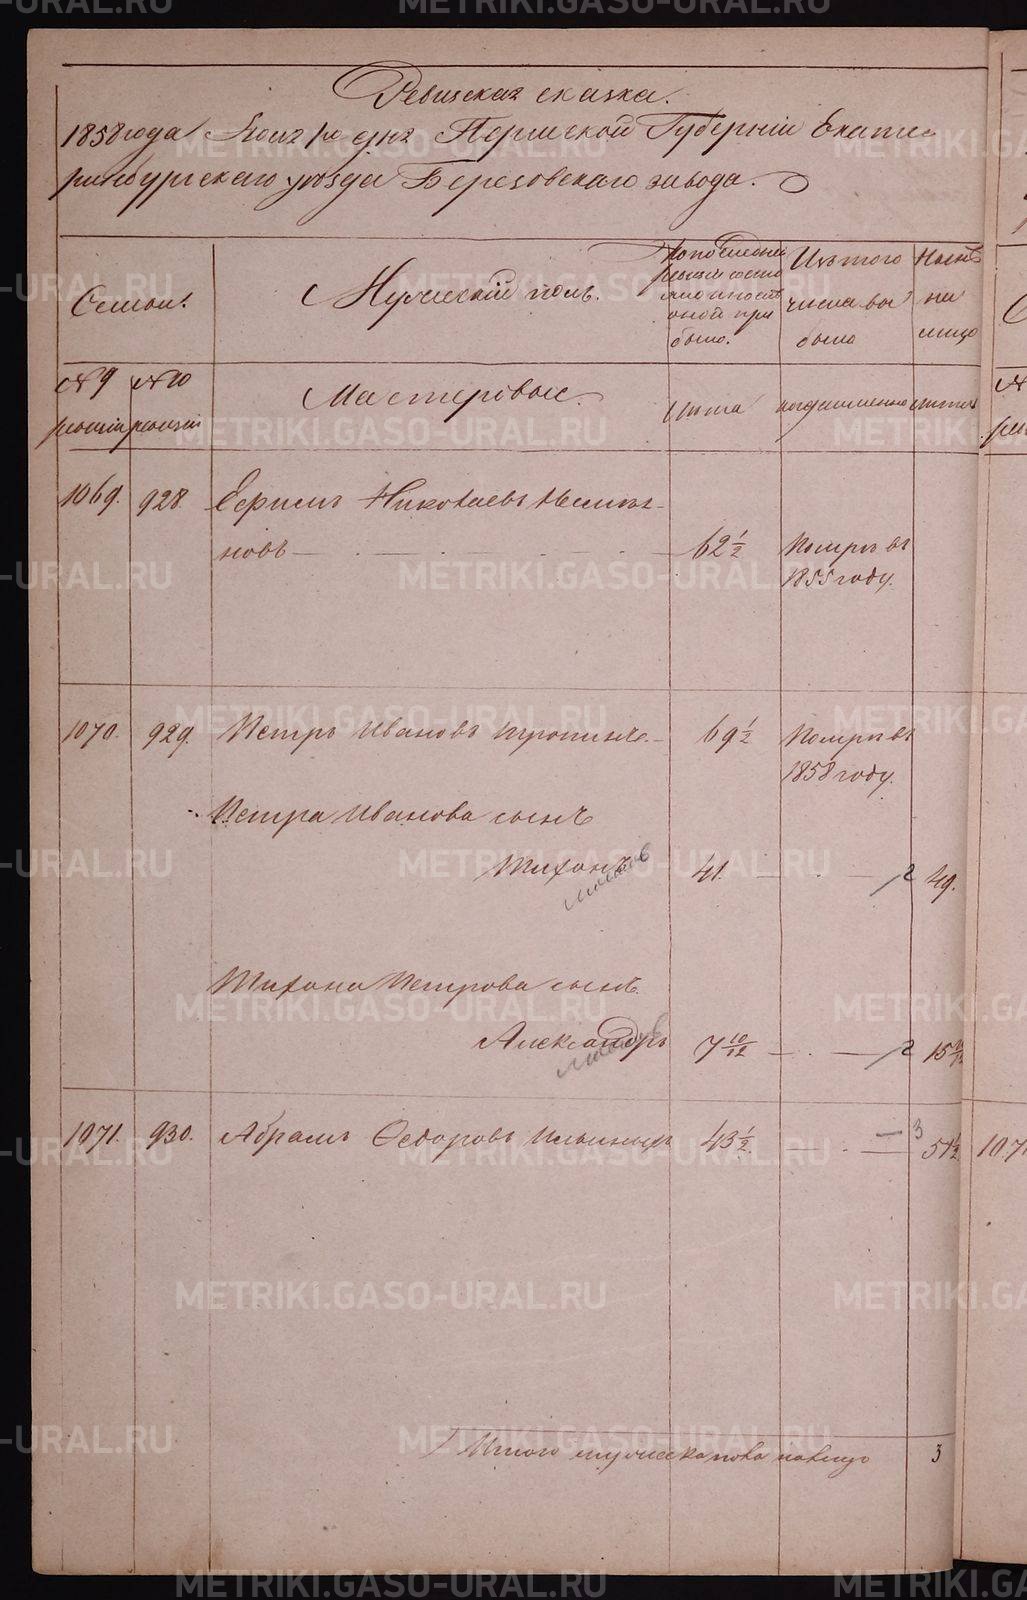 Ревизская сказка.
1858 года дня Пермской Губерніи Екате-
ринбургскаго уѣзда Березовскаго завода.
Семьи.
Мужескій полъ.
По последней
ревизіи состо
яло и после
оной при
было.
Изъ того
числа вы
было
Ныне
на
лицо
№ 9
ревизіи
№ 10
ревизіи
Мастеровые.
Лѣта
когда именно
Лѣта
1069.
928.
Ефимъ Николаевъ
новъ
62 1/2
Померъ въ
1855 году.
1070.
929.
Петръ Ивановъ
69 1/2
Померъ въ
1858 году.
Петра Иванова сынъ
Тихонъ
41.
49.
Тихона Петрова сынъ
Александръ
7 10/12
15
1071.
930.
Абрамъ Федоровъ Ильиныхъ
43 1/2
3
51 1/2
107
Итого мужеска пола налицо
3
METRIKI.GASO-URAL.RU